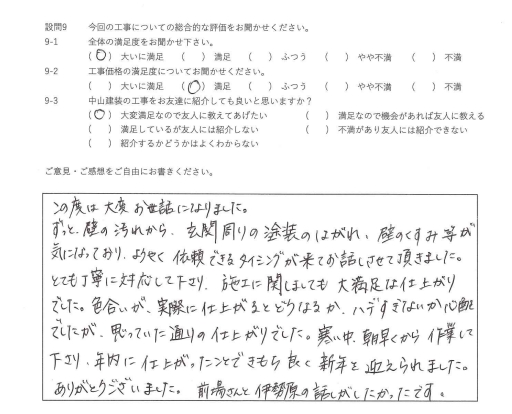 設問9　今回の工事についての総合的な評価をお聞かせください。
9-1　全体の満足度をお聞かせ下さい。
(○) 大いに満足　( ) 満足　( ) ふつう　( ) やや不満　( ) 不満
9-2　工事価格の満足度についてお聞かせください。
( ) 大いに満足　(○) 満足　( ) ふつう　( ) やや不満　( ) 不満
9-3　中山建装の工事をお友達に紹介しても良いと思いますか？
(○) 大変満足なので友人に教えてあげたい　( ) 満足なので機会があれば友人に教える
( ) 満足しているが友人には紹介しない　( ) 不満があり友人には紹介できない
( ) 紹介するかどうかはよくわからない
ご意見・ご感想をご自由にお書きください。
この度は大変お世話になりました。
ずっと、壁の汚れから、玄関周りの塗装のはがれ、壁のくすみ等が
気になっており、ようやく依頼できるタイミングが来てお話しさせて頂きました。
とても丁寧に対応して下さり、施工に関しましても大満足な仕上がり
でした。色合いが、実際に仕上がるとどうなるか、ハデすぎないか心配
でしたが、思っていた通りの仕上がりでした。寒い中、朝早くから作業して
下さり、年内に仕上がったことできもち良く新年を迎えられました。
ありがとうございました。前場さんと伊勢原の話しがしたかったです。